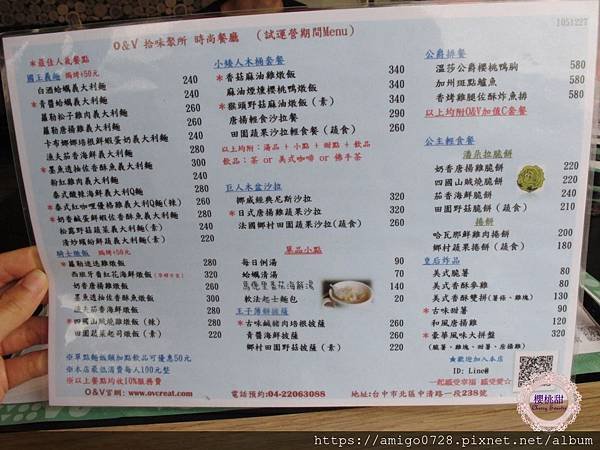 1051227
O&V 拾味聚所 時尚餐廳 (試運營期間Menu)
*最佳人氣餐點
國王義麵 焗烤+50元
白酒蛤蠣義大利麵 240
*青醬蛤蠣義大利麵 240
蘿勒松子雞肉義大利麵
蘿勒唐揚雞義大利麵 240
卡布娜娜培根鮮蝦蛋奶義大利麵
漁夫茄香海鮮義大利麵 280
*墨魚透抽佐香酥魚義大利麵
粉紅雞肉義大利麵
泰式酸辣海鮮義大利Q麵
*泰式紅咖哩優格雞義大利Q麵(辣) 260
*奶香鹹蛋鮮蝦佐香酥魚義大利麵 280
松露野菇蔬菜義大利麵(素) 240
清炒蝦紛鮮蔬義大利麵(素) 220
騎士燉飯 焗烤+50元
*蘿勒迷迭雞燉飯 240
西班牙番紅花海鮮燉飯 280
奶香唐揚雞燉飯 240
墨魚透抽佐香酥魚燉飯 280
漁夫茄香海鮮燉飯 280
*四國山賊燒雞燉飯(辣) 260
田園蔬菜起司燉飯(素) 220
※單點麵飯類加點飲品可優惠50元
※本店最低消費每人100元整
※以上餐點均收10%服務費
O&V官網:www.ovcreat.com
小矮人木桶套餐
*香菇麻油雞燉飯
麻油煙燻櫻桃鴨燉飯
*猴頭野菇麻油燉飯(素) 320
唐揚輕食沙拉餐
田園蔬果沙拉輕食餐(蔬食)
以上均附:湯品+小點+甜點+飲品
飲品:茶 or 美式咖啡 or 佛手茶
巨人木盆沙拉
挪威經典尼斯沙拉 320
*日式唐揚雞蔬果沙拉
法國鄉村田園蔬果沙拉(蔬食) 260
單品小點
每日例湯 70
蛤蠣清湯 90
馬傻里番茄海鮮湯 140
軟法起士麵包 20
王子薄餅披薩
*古味鹹豬肉培根披薩 260
青醬海鮮披薩 280
鄉村田園野菇披薩(素) 240
電話預約:04-22063088
地址:台中市北區中清路一段238號
公爵排餐
溫莎公爵櫻桃鴨胸 580
加州斑點鱸魚 580
香烤雞腿佐酥炸魚排 580
以上均附O&V加值C套餐
公主輕食餐
潘朵拉脆餅
奶香唐揚雞脆餅 220
四國山賊燒脆餅 220
茄香海鮮脆餅 240
田園野菇脆餅(蔬食) 210
捲餅
哈瓦那鮮雞肉捲餅
鄉村蔬果捲餅(蔬食) 180
皇后炸品
美式脆薯 80
美式香酥參雞 80
美式香酥雙拼(薯條、雞塊) 130
*古味甜薯 90
和風唐揚雞 120
*豪華風味大拼盤 320
(脆薯、雞塊、甜薯、唐揚雞)
★歡迎加入本店
ID: Line@
一起感受幸福 感受愛☆
櫻桃甜
https://amigo0728.pixnet.net/album